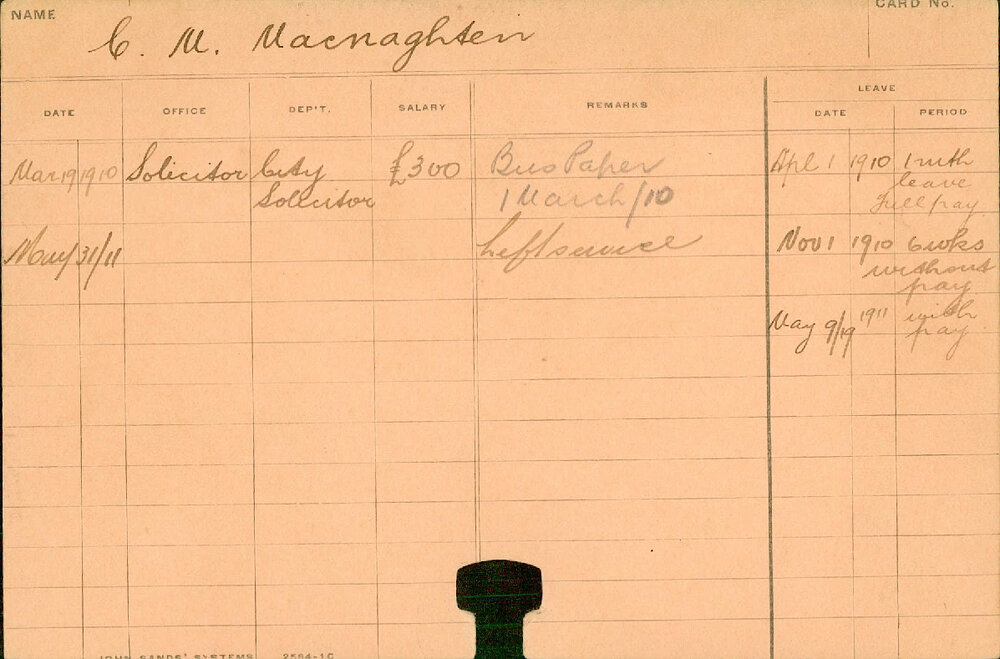 NAME
CARD No.
C. M. Macnaghten
DATE OFFICE DEP'T. SALARY REMARKS LEAVE
DATE PERIOD
Mar 19 1910 Solicitor City £300 Bus Paper Apl 1 1910 1 mth
Solicitor 1 March/10 leave
Full pay
May 31/11 Left service Nov 1 1910 6 wks
without
pay
May 9/19 1911 with
pay
JOHN SANDS' SYSTEMS 2584-10